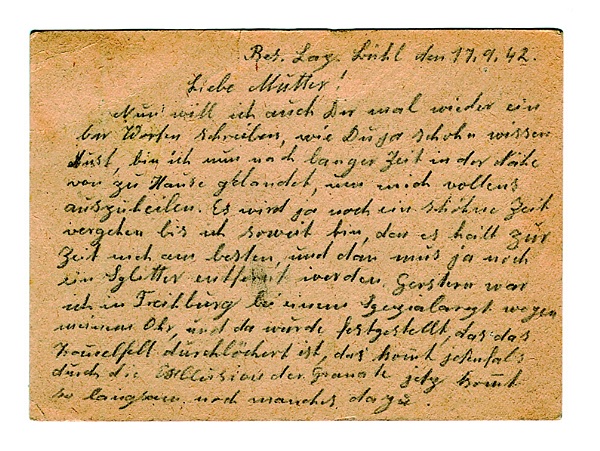 Res. Laz. Bühl den 17.9.42.
Liebe Mutter!
Nun will ich auch Dir mal wieder ein
bar Worten schreiben, wie Du ja schohn wissen
must, bin ich nun nach langer Zeit in der Nähe
von zu Hause gelandet, um mich vollens
auszuheilen. Es wird ja noch ein schöhne Zeit
vergehen bis ich soweit bin, den es heilt zur
Zeit nich am besten, und dan mus ja noch
ein Splitter entfernt werden. Gerstern war
ich in Freihburg bei einem Spezialarzt wegen
meinem Ohr, und da wurde festgestellt, das das
durchlöchert ist, das komt jedenfals
durch die der Granate jetz komt
so langsam noch manches dazu.